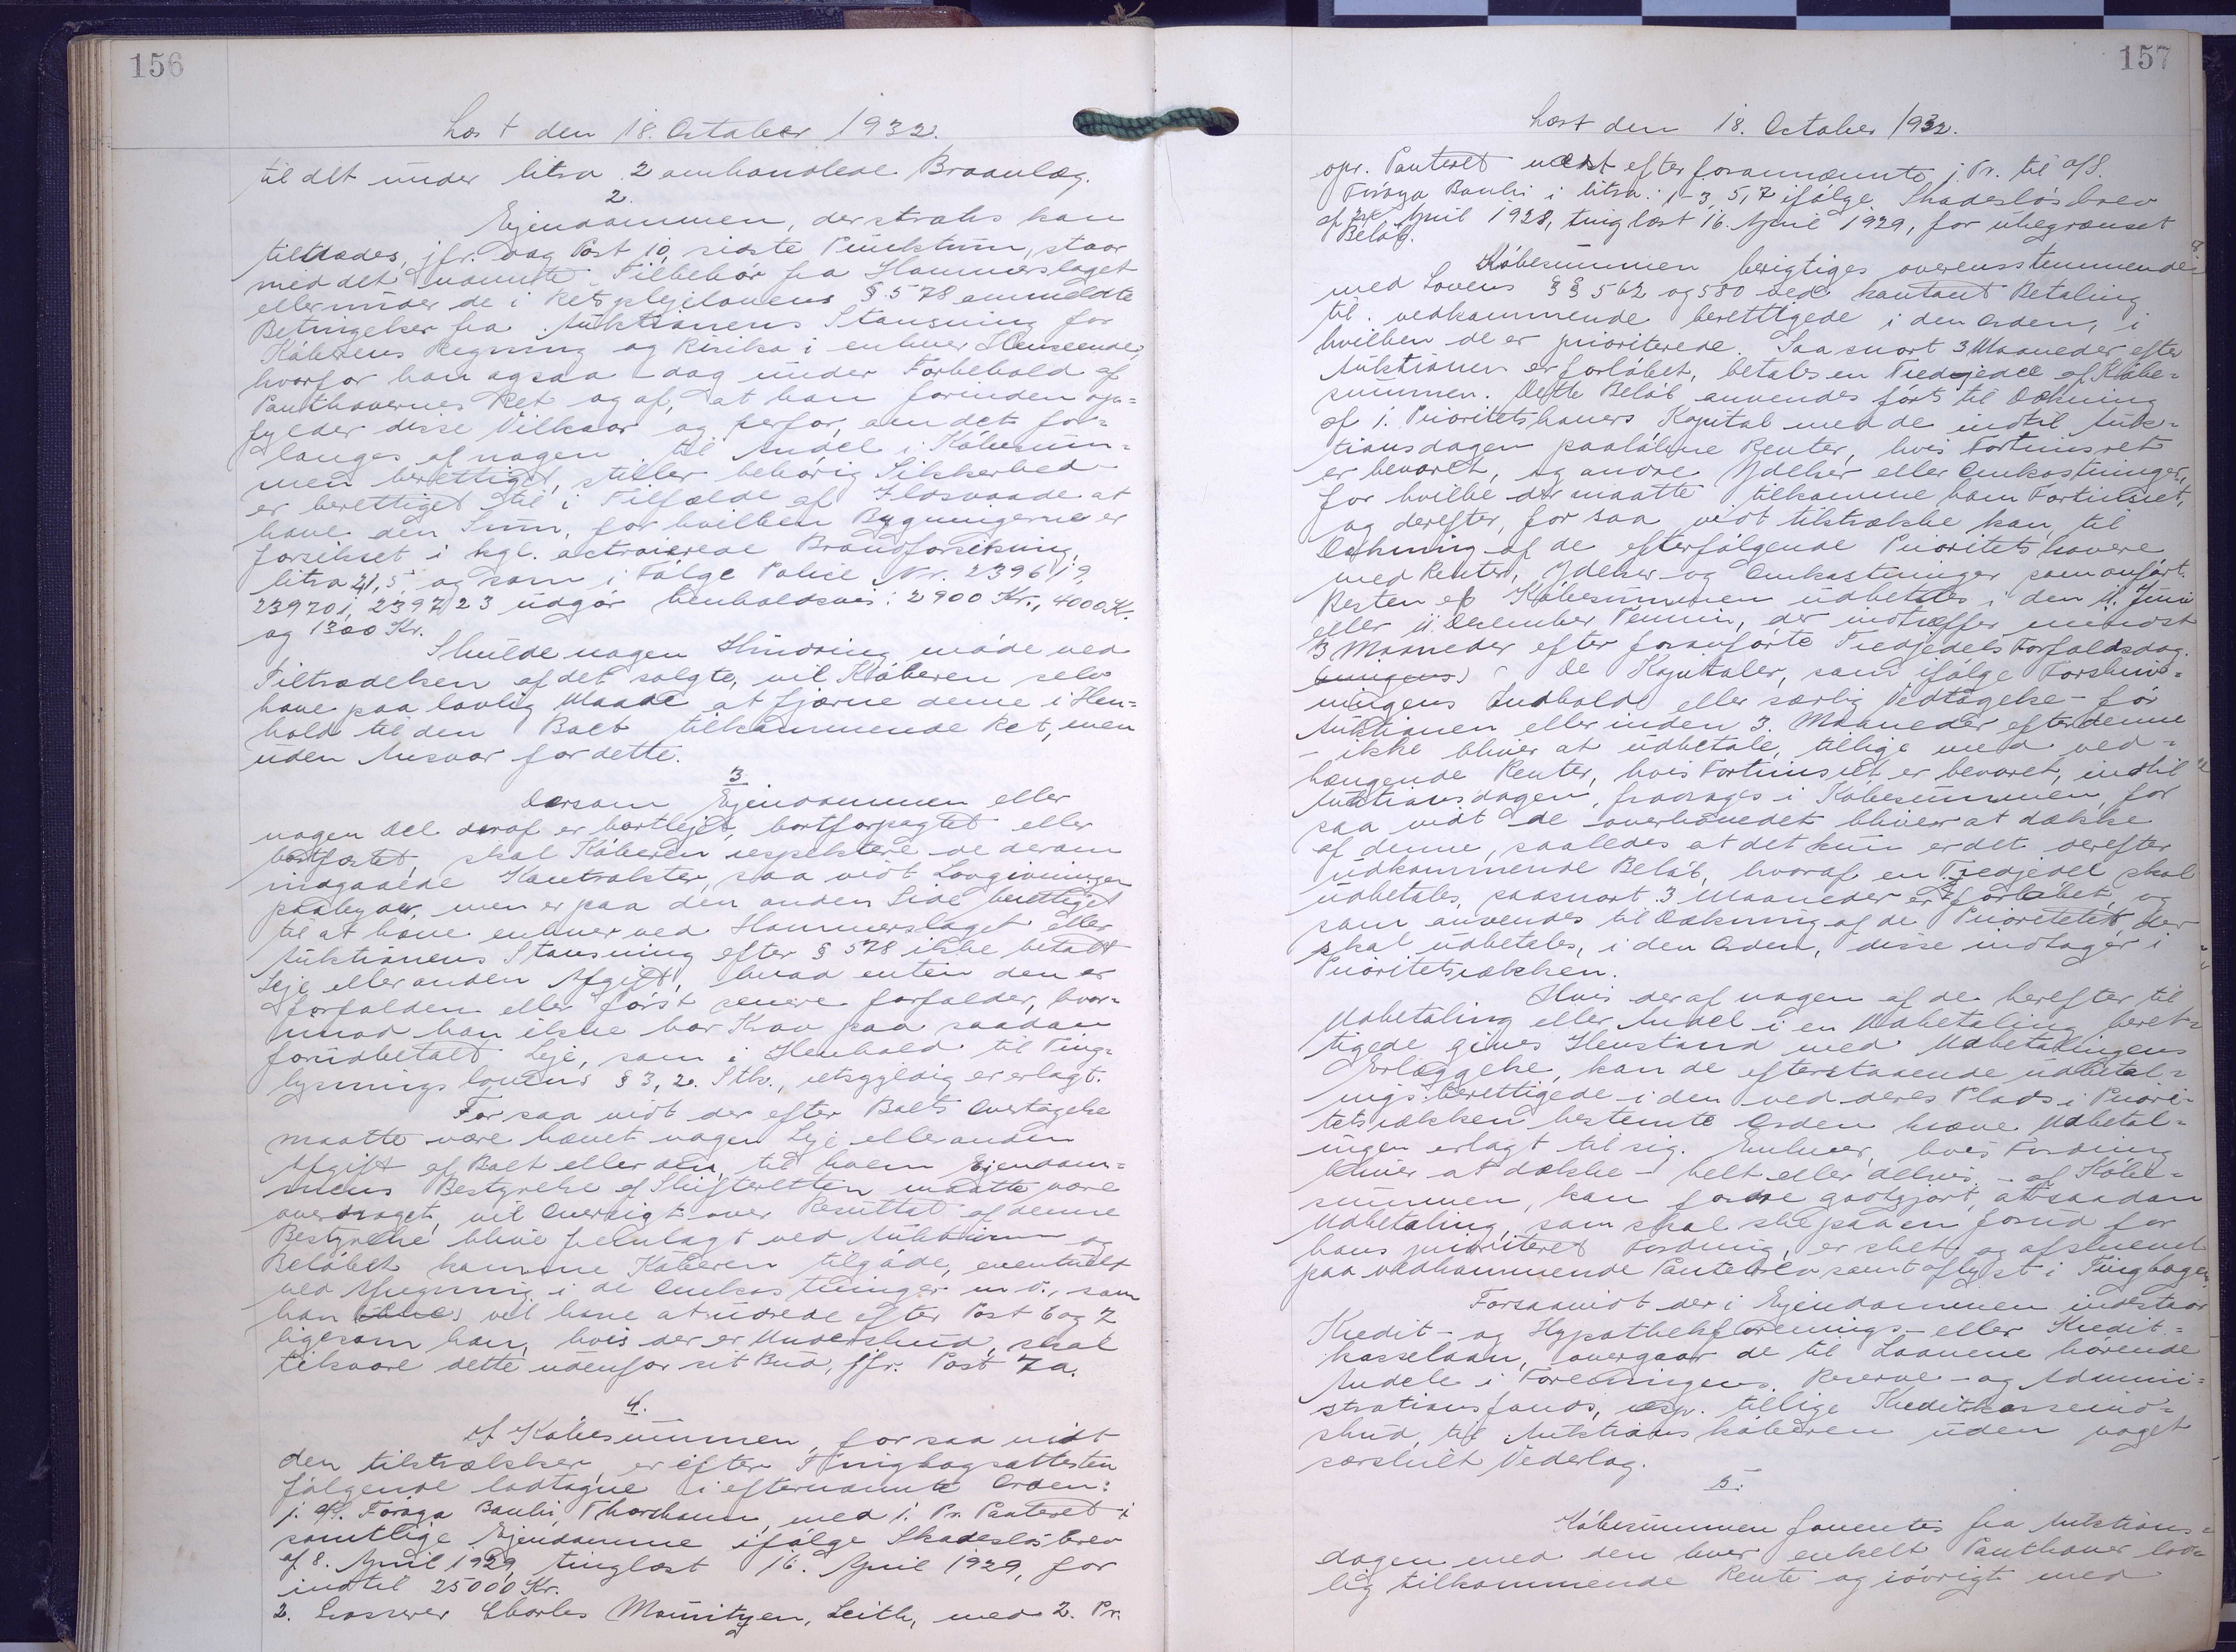 156
Læst den 18. October 1932.
til det under litra 2 omhandlede Braanlæg.
2.
Ejendommen, der straks kan
tiltrædes, jfr. dog Post 10, sidste Punktum, staar
med det nævnte Tilbehör fra Hammerslaget
eller under de i Retsplejelovens § 578 ommeldte
Betingelser fra Auktionens Slutning for
Köberens Regning og Risiko i enhver Henseende,
hvorfor han ogsaa - dog under Forbehold af
Panthavernes Ret og af, at han forinden op=
fylder disse Vilkaar og derfor, om det for=
langes af nogen til Andel i Köbesum=
men berettiget, stiller behörig Sikkerhed -
er berettiget til i Tilfælde af Ildsvaade at
have den Sum, for hvilken Bygningerne er
forsikret i kgl. octroierede Brandforsikring,
litra 21, 5 og som i Fölge Police Nr. 239619,
239701, 239723 udgör henholdsvis: 2900 Kr., 4000 Kr.
og 1300 Kr.
Skulde nogen Hindring möde ved
Tiltrædelsen af det solgte, vil Köberen selv
have paa lovlig Maade at fjærne denne i Hen=
hold til den Boet tilkommende Ret, men
uden Ansvar for dette.
3
Dersom Ejendommen eller
nogen Del deraf er bortlejet, bortforpagtet eller
bortfæstet, skal Köberen respektere de derom
indgaaede Kontrakter, saa vidt Lovgivningen
paabyder, men er paa den anden Side berettiget
til at hæve enhver ved Hammerslaget eller
Auktionens Slutning efter § 578 ikke betalt
Leje eller anden Afgift, hvad enten den er
forfalden eller först senere forfalder, hvor=
imod han ikke har Krav paa saadan
forudbetalt Leje, som i Henhold til Ting=
lysningslovens § 3, 2. Stk., retsgyldig er erlagt.
For saa vidt der efter Boets Overtagelse
maatte være hævet nogen Leje eller anden
Afgift af Boet eller den, til hvem Ejendom=
mens Bestyrelse af Skifteretten maatte være
overdraget, vil Oversigt over Resultat af denne
Bestyrelse blive fremlagt ved Auktionen og
Belöbet komme Köberen tilgode, eventuelt
ved Afregning i de Omkostninger m. v., som
han vil have at udrede efter Post 6 og 7
ligesom han, hvis der er Underskud, skal
tilsvare dette udenfor sit Bud, jfr. Post 7a.
4.
Af Köbesummen, for saa vidt
den tilstrækker, er efter Tingbogsattesten
fölgende lodtagne i efternævnte Orden:
1. A/S. Föroya Banki, Thorshavn, med 1. Pr. Panteret i
samtlige Ejendomme ifölge Skadeslösbrev
af 8. April 1929, tinglæst 16. April 1929, for
indtil 25000 Kr.
2. Grosserer Charles Mauritzen, Leith, med 2. Pr.
157
Læst den 18. October 1932.
opr. Panteret næst efter forannævnte 1. Pr. til A/S.
Föroya Banki i litra: 1-3, 5, 7 ifölge Skadeslösbrev
af April 1928, tinglæst 16. April 1929, for ubegrænset
Belöb.
Köbesummen berigtiges overensstemmende
med Lovens §§ 562 og 580 ved kontant Betaling
til vedkommende berettigede i den Orden, i
hvilken de er prioriterede. Saa snart 3 Maaneder efter
Auktionen er forlöbet, betales en Trediedel af Köbe=
summen. Dette Belöb anvendes först til Dækning
af 1. Prioritetshavers Kapital med de indtil Auk=
tionsdagen paalöbne Renter, hvis Fortrinsret
er bevaret, og andre Ydelser eller Omkostninger,
for hvilke der maatte tilkomme ham Fortrinsret,
og derefter, for saa vidt tilstrække kan, til
Dækning af de efterfölgende Prioritetshavere
med Renter, Ydelser og Omkostninger som anfört.
Resten af Köbesummen udbetales i den 11. Juni
eller 11. December Termin, der indtræffer mindst
3 Maaneder efter foranförte Trediedels Forfaldsdag.
De Kapitaler, som ifölge Forskriv=
ningens Indhold eller særlig Vedtagelse - för
Auktionen eller inden 3 Maaneder efter denne
- ikke bliver at udbetale, tillige med ved=
hængende Renter, hvis Fortrinsret er bevaret, indtil
Auktionsdagen, fradrages i Köbesummen, for
saa vidt de overhovedet bliver at dække
af denne, saaledes at det kun er det derefter
udkommende Belöb, hvoraf en Trediedel skal
udbetales, saasnart 3 Maaneder er forlöbet, og
som anvendes til Dækning af de Prioriteter, der
skal udbetales, i den Orden, disse indtager i
Prioritetsrækken.
Hvis der af nogen af de herefter til
Udbetaling eller Andel i en Udbetaling beret=
tigede gives Henstand med Udbetalingens
Erlæggelse, kan de efterstaaende udbetal=
ingsberettigede i den ved deres Plads i Priori=
tetsrækken bestemte Orden kræve Udbetal=
ingen erlagt til sig. Enhver, hvis Fordring
bliver at dække - helt eller delvis - af Köbe=
summen, kan fordre godtgjort, at saadan
Udbetaling, som skal ske paa en forud for
hans prioriteret Fordring, er sket og afskrevet
paa vedkommende Pantebrev samt aflyst i Tingbogen.
Forsaavidt der i Ejendommen indestaar
Kredit- og Hypothekforenings- eller Kredit=
kasselaan, overgaar de til Laanene hörende
Andele i Foreningens Reserve- og Admini=
strationsfonds, resp. tillige Kreditkasseind=
skud, til Auktionsköberen uden noget
særskilt Vederlag.
5.
Köbesummen forrentes fra Auktions=
dagen med den hver enkelt Panthaver lov=
lig tilkommende Rente og iövrigt med